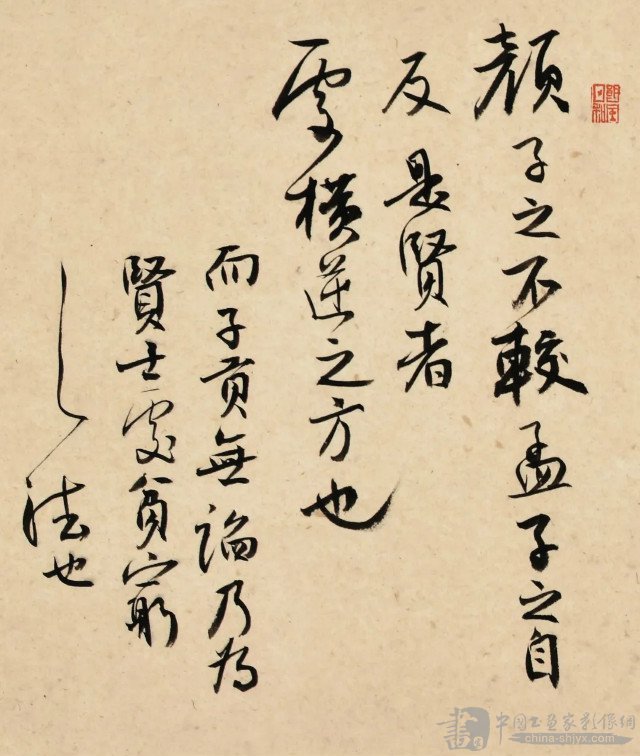 顏子之不較孟子之自
反是賢者
處橫逆之方也
而子貢無諂乃為
賢士處貧窮
之法也
中国书画家影像網
china-shjyx.com